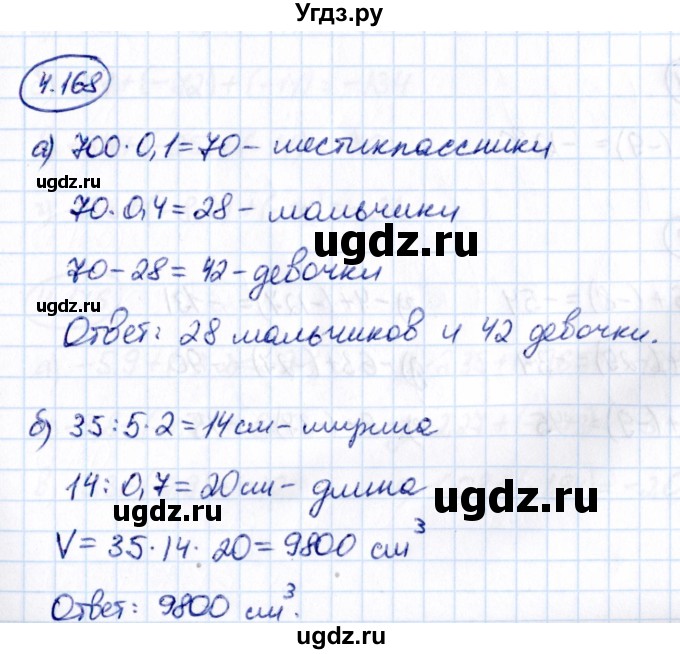 Угдз.ру
4.168
а) 700·0,1=70 - шестиклассники
ugdz.ru
70·0,4=28 - мальчики
ugdz.ru
70-28=42 - девочки
ugdz.ru
Ответ: 28 мальчиков и 42 девочки.
б) 35:5·2=14см - ширина
14:0,7=20см - длина
ugdz.ru
ugdz.ru
V=35·14·20=9800 см³
Ответ: 9800 см³.
ugdz.ru